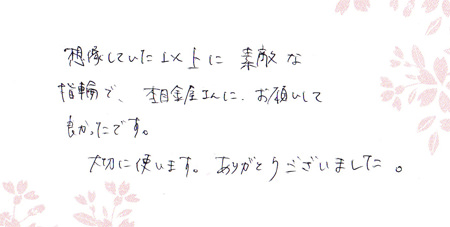 想像していた以上に 素敵な
指輪で、杢目金屋さんに、お願いして
良かったです。
大切に使います。ありがとうございました。